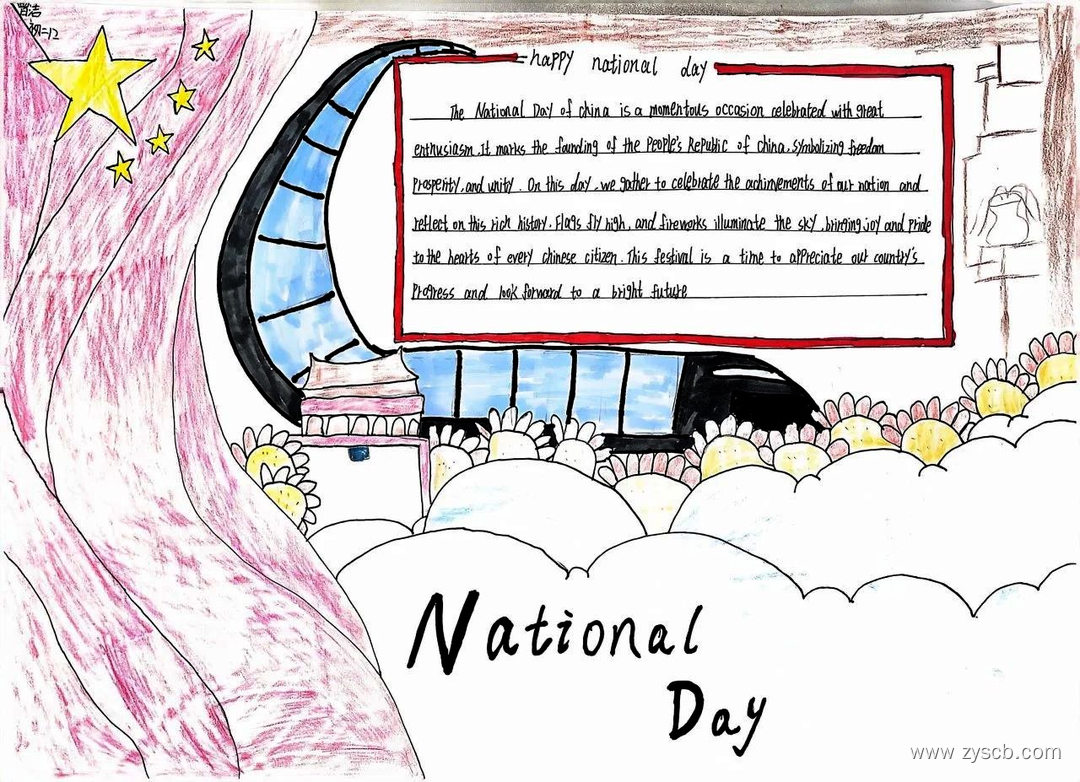 初二12
happy national day
The National Day of china is a momentous occasion celebrated with great
enthusiasm. It marks the founding of the People's Republic of china, symbolizing freedom
Prosperity, and unity. On this day, we gather to celebrate the achivements of our nation and
reflect on this rich history. Flags fly high, and fireworks illuminate the sky, bringing joy and pride
to the hearts of every chinese citizen. This festival is a time to appreciate our country's
Progress and look forward to a bright future
National
Day
www.zyscb.com